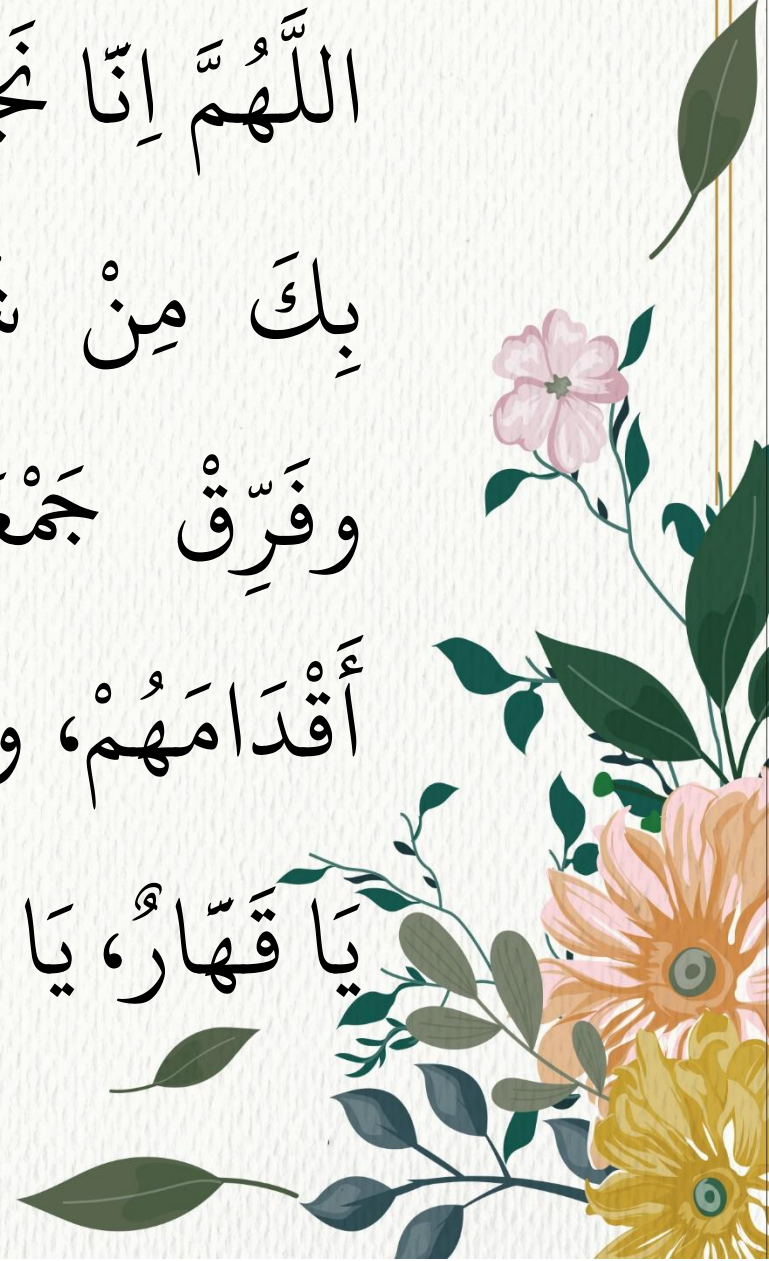 اللَّهُمَّ اِنَّا
بِكَ مِنْ
وفَرِّقْ
أَقْدَامَهُمْ، و
يَا قَهَّارٌ، يَا